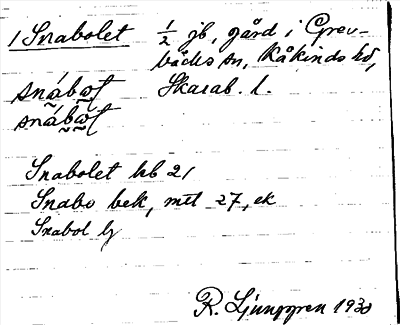 1 Snabolet
1/2 jb, gård i Grev-
bäcks sn, Kåkinds hd,
Skarab. l.
snábo̱ɫ
snábo̱ɫ
Snabolet hb 21
Snabo bek, mtl 27, ek
Snabol lj
R. Ljunggren 1930